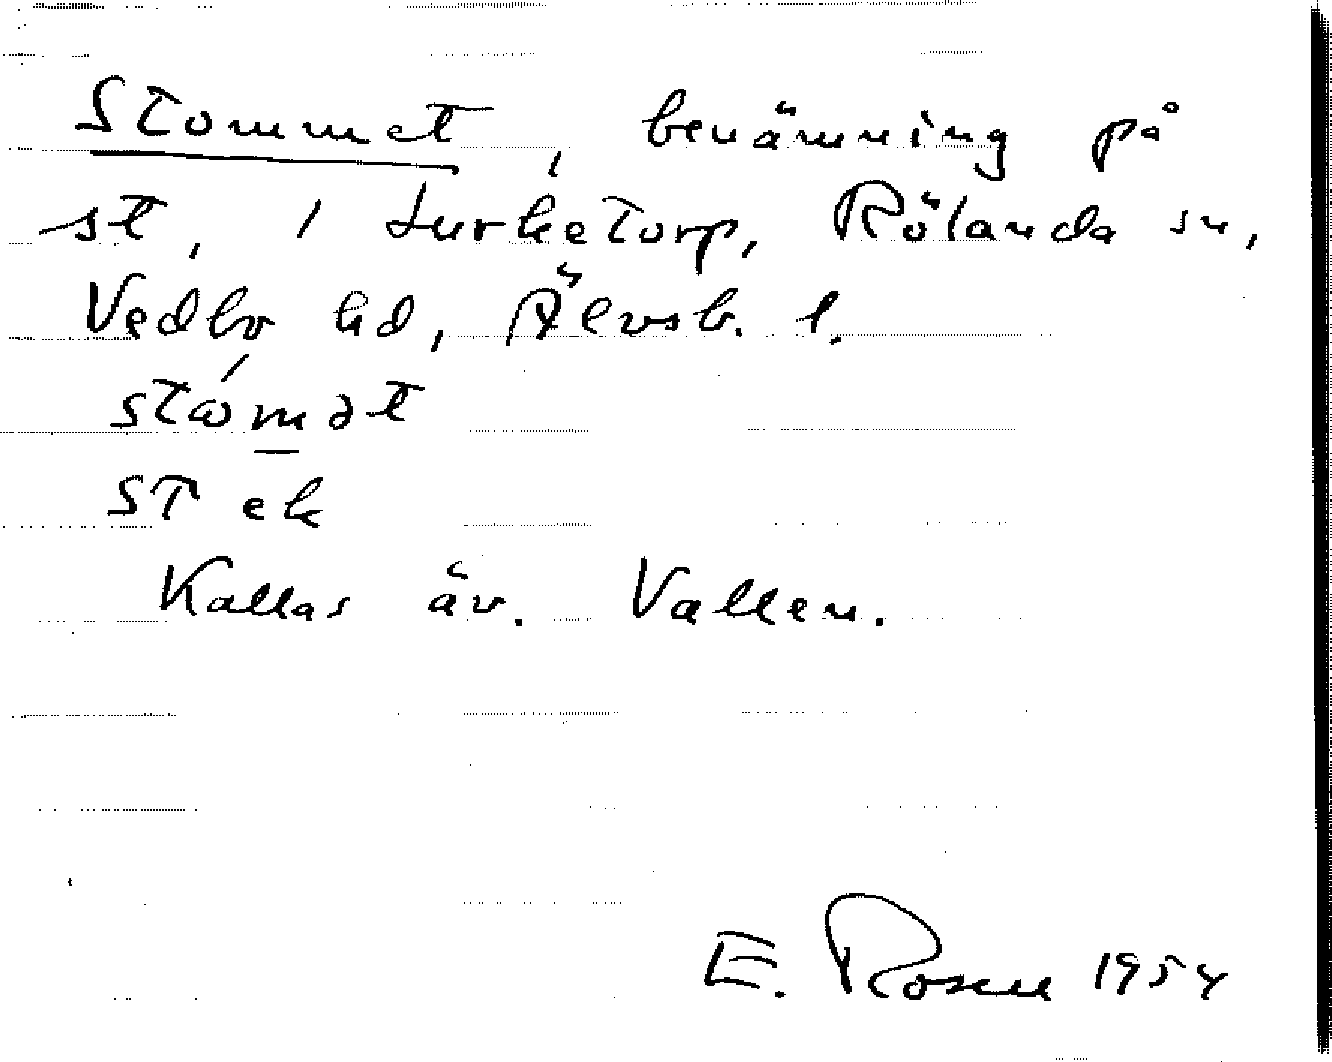 Stommet, benämning på
st, 1 Rölanda sn,
Vedbo hd, Älvsb. l.
stώm̲ət
ST ek
Kallas äv. Vallen.
E. Rosell 1954